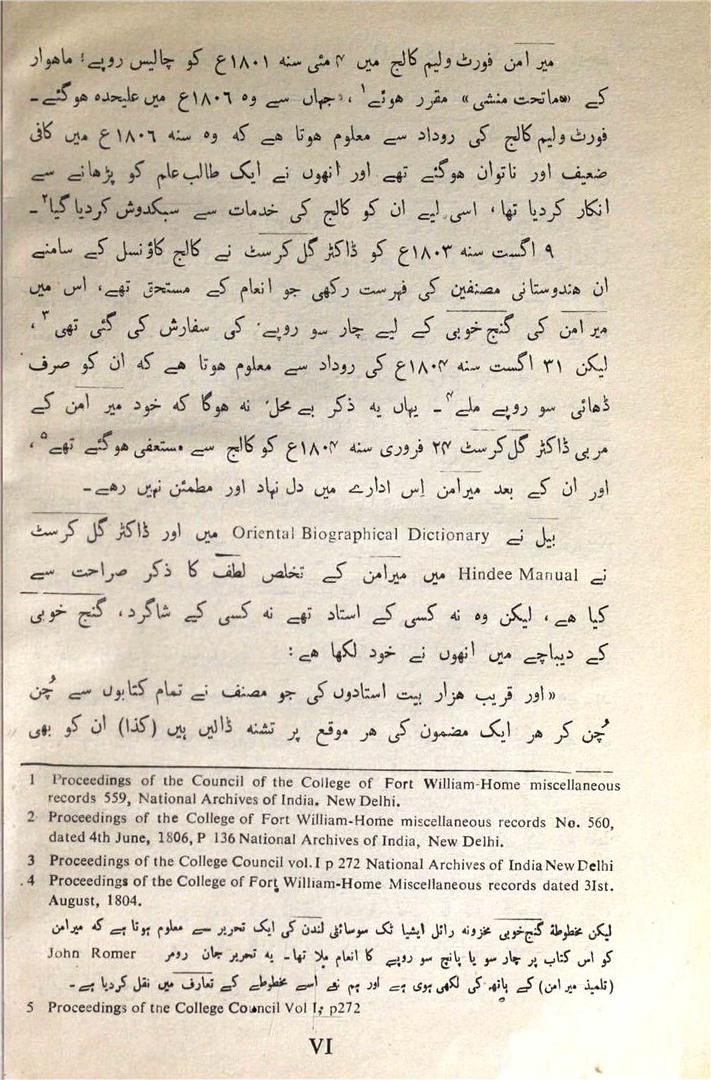 میر امن فورٹ ولیم کالج میں ۴ مئی سنہ ۱۸۰۱ع کو چالیس روپے؛ ماہوار
کے «ماتحت منشی» مقرر ہوئے۱، جہاں سے وہ ۱۸۰۶ع میں علیحدہ ہوگئے۔
فورٹ ولیم کالج کی روداد سے معلوم ہوتا ہے کہ وہ سنہ ۱۸۰۶ع میں کافی
ضعیف اور ناتوان ہوگئے تھے اور انھوں نے ایک طالب علم کو پڑھانے سے
انکار کردیا تھا، اسی لیے ان کو کالج کی خدمات سے سبکدوش کردیا گیا۲۔
۹ اگست سنہ ۱۸۰۳ع کو ڈاکٹر گل کرسٹ نے کالج کاؤنسل کے سامنے
ان ہندوستانی مصنفین کی فہرست رکھی جو انعام کے مستحق تھے، اس میں
میر امن کی گنج خوبی کے لیے چار سو روپے کی سفارش کی گئی تھی۳،
لیکن ۳۱ اگست سنہ ۱۸۰۴ع کی روداد سے معلوم ہوتا ہے کہ ان کو صرف
ڈھائی سو روپے ملے۴۔ یہاں یہ ذکر بے محل نہ ہوگا کہ خود میر امن کے
مربی ڈاکٹر گل کرسٹ ۲۴ فروری سنہ ۱۸۰۴ع کو کالج سے مستعفی ہوگئے تھے۵،
اور ان کے بعد میرامن اِس ادارے میں دل نہاد اور مطمئن نہیں رہے۔
بیل نے Oriental Biographical Dictionary میں اور ڈاکٹر گل کرسٹ
نے Hindee Manual میں میرامن کے تخلص لطف کا ذکر صراحت سے
کیا ہے، لیکن وہ نہ کسی کے استاد تھے نہ کسی کے شاگرد، گنج خوبی
کے دیباچے میں انھوں نے خود لکھا ہے:
«اور قریب ہزار بیت استادوں کی جو مصنف نے تمام کتابوں سے چُن
چُن کر ہر ایک مضمون کی ہر موقع پر تشنہ ڈالیں ہیں (کذا) ان کو بھی
1 Proceedings of the Council of the College of Fort William-Home miscellaneous
records 559, National Archives of India. New Delhi.
2 Proceedings of the College of Fort William-Home miscellaneous records No. 560,
dated 4th June, 1806, P 136 National Archives of India, New Delhi.
3 Proceedings of the College Council vol. I p 272 National Archives of India New Delhi
4 Proceedings of the College of Fort William-Home Miscellaneous records dated 3Ist.
August, 1804.
لیکن مخطوطۂ گنج خوبی مخزونہ رائل ایشیا ٹک سوسائٹی لندن کی ایک تحریر سے معلوم ہوتا ہے کہ میرامن
کو اس کتاب پر چار سو یا پانچ سو روپے کا انعام ملا تھا۔ یہ تحریر جان رومر John Romer
(تلمیذ میر امن) کے ہاتھ کی لکھی ہوی ہے اور ہم نے اسے مخطوطے کے تعارف میں نقل کردیا ہے۔
5 Proceedings of the College Council Vol I, p272
VI